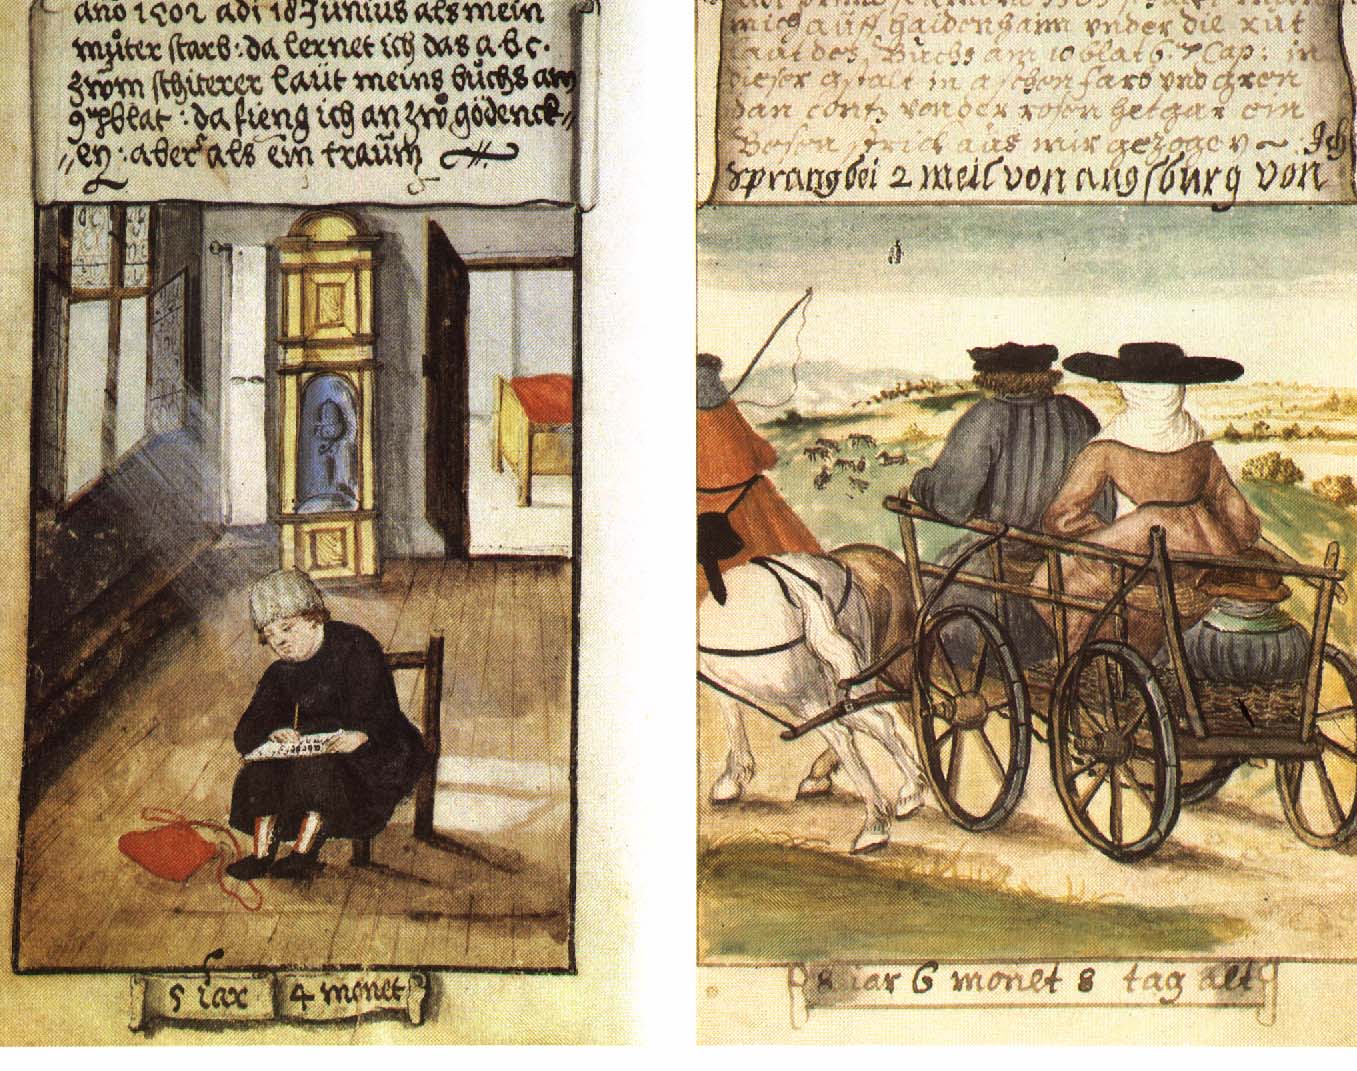 anno 1502 adi 18 Junius als mein
muͦter starb · da lernet ich das a·b·c·
zwm schiterer laüt meins buͦchs am
blat : da fieng ich an zwͦ gödenck〃
〃en : aber als ein traüm
5 iar 4 monet
mich auff haidenhaim vnder die rut
laut des Buchs am 10 blat 6·7 Cap: in
dieser gstalt in aschen farb vnd gren
dan contz von der rosen het gar ein
Bosen strick aus mir gezogen ~ Ich
sprang bei 2 meil von augsburg von
8 iar 6 monet 8 tag alt